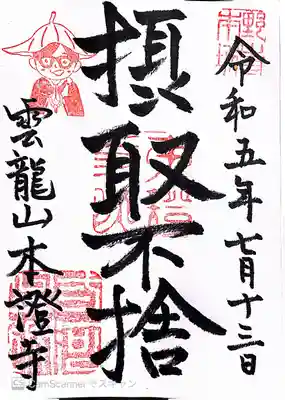 令和五年七月十三日
摂取不捨
雲龍山本證寺
CamScanner でスキャン